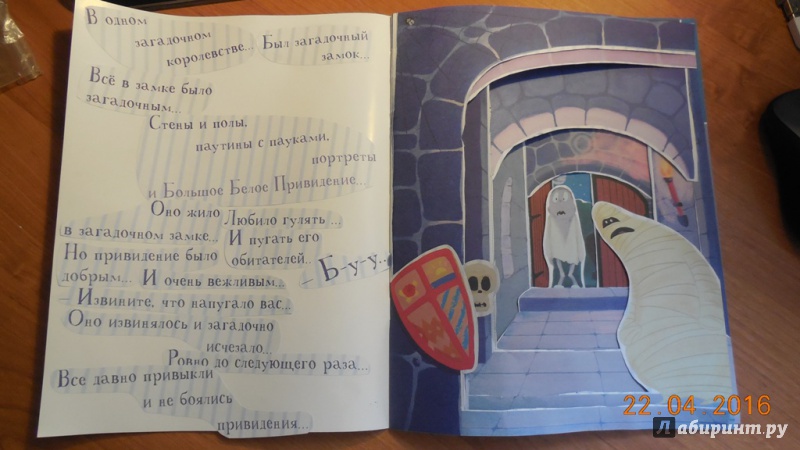 В одном
загадочном
королевстве... Был загадочный
замок...
Всё в замке было
загадочным...
Стены и полы,
паутины с пауками,
портреты
и Большое Белое Привидение...
Оно жило Любило гулять...
в загадочном замке... И пугать его
Но привидение было обитателей..
добрым... И очень вежливым...
- Б-у-у...
- Извините, что напугало вас...
Оно извинялось и загадочно
исчезало...
Ровно до следующего раза...
Все давно привыкли
и не боялись
привидения...
22.04.2016
Лабиринт.ру